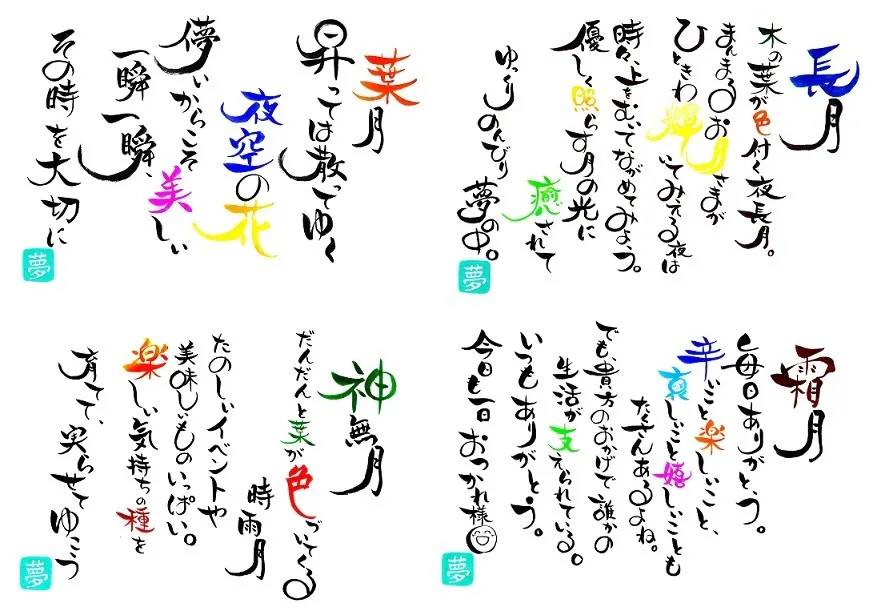 葉月
昇っては散ってゆく
夜空の花
儚いからこそ美しい
一瞬一瞬、
その時を大切に
夢
長月
木の葉が色付く夜長月。
まんまるお月さまが
ひときわ輝いてみえる夜は
時々、上をむいてながめてみよう。
優しく照らす月の光に
癒されて
ゆっくりのんびり夢の中。
夢
神無月
だんだんと葉が色づいてくる
時雨月
たのしいイベントや
美味しいものいっぱい。
楽しい気持ちの種を
育てて、実らせてゆこう
夢
霜月
毎日ありがとう。
辛いこと楽しいこと、
哀しいこと嬉しいことも
たくさんあるよね。
でも貴方のおかげで誰かの
生活が支えられている。
いつもありがとう。
今日も一日おつかれ様
夢